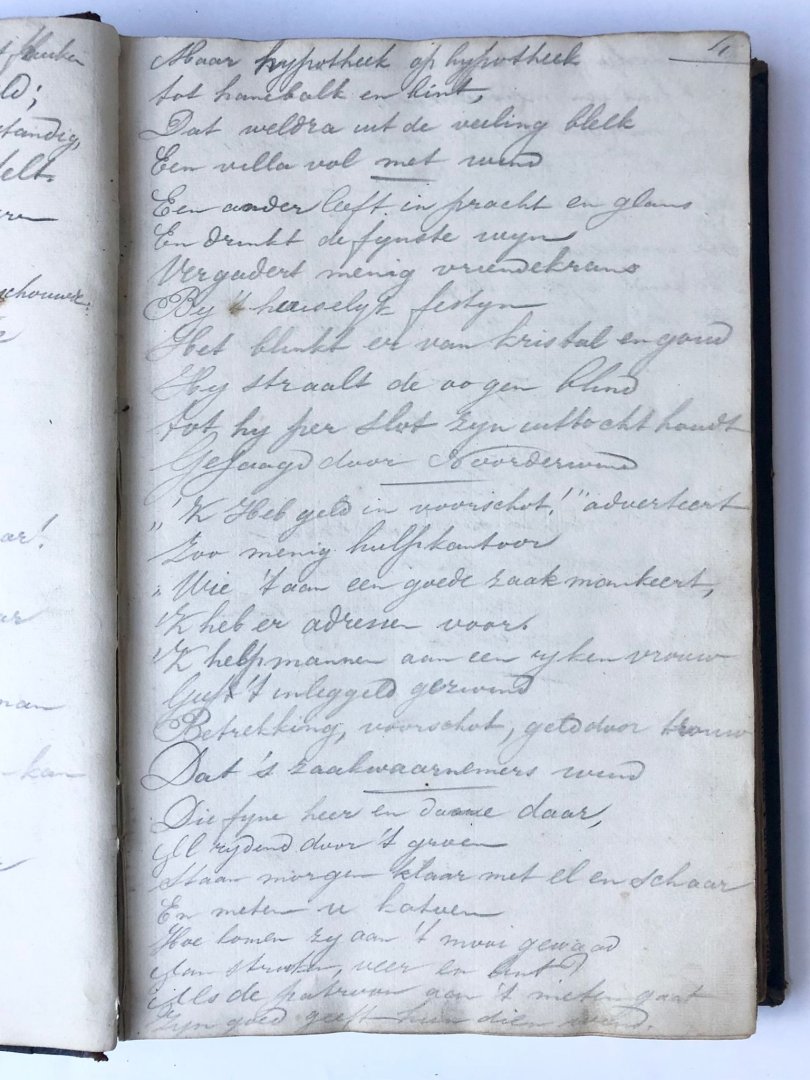 ld;
standig,
delt.
schouwer.
ar!
ar
man
kan
4
Maar hypotheek op hypotheek
tot hanebalk en bint,
Dat weldra uit de veiling bleek
Een villa vol met wind
Een ander leeft in pracht en glans
En drinkt de fynste wyn
Vergadert menig vriendekrans
By 't huiselyk festyn
Het blinkt er van kristal en goud
Hy straalt de oogen blind
tot hy per slot zyn uittocht houdt
Gejaagd door Noorderwind
„'K Heb geld in voorschot!" adverteert
Zoo menig hulpkantoor
„Wie 't aan een goede zaak mankeert,
'K heb er adressen voor.
'K help mannen aan een ryken vrouw
Geeft 't inleggeld gezwind
Betrekking, voorschot, geld door trouw
Dat 's zaakwaarnemers wind
Die fyne heer en dame daar,
Al rydend door 't groen
Staan morgen klaar met el en schaar
En meten u katoen
Hoe komen zy aan 't mooi gewaad
Aan strooken, veer en lint
Als de patroon aan 't meten gaat
Zyn goed geeft hun dien wind.